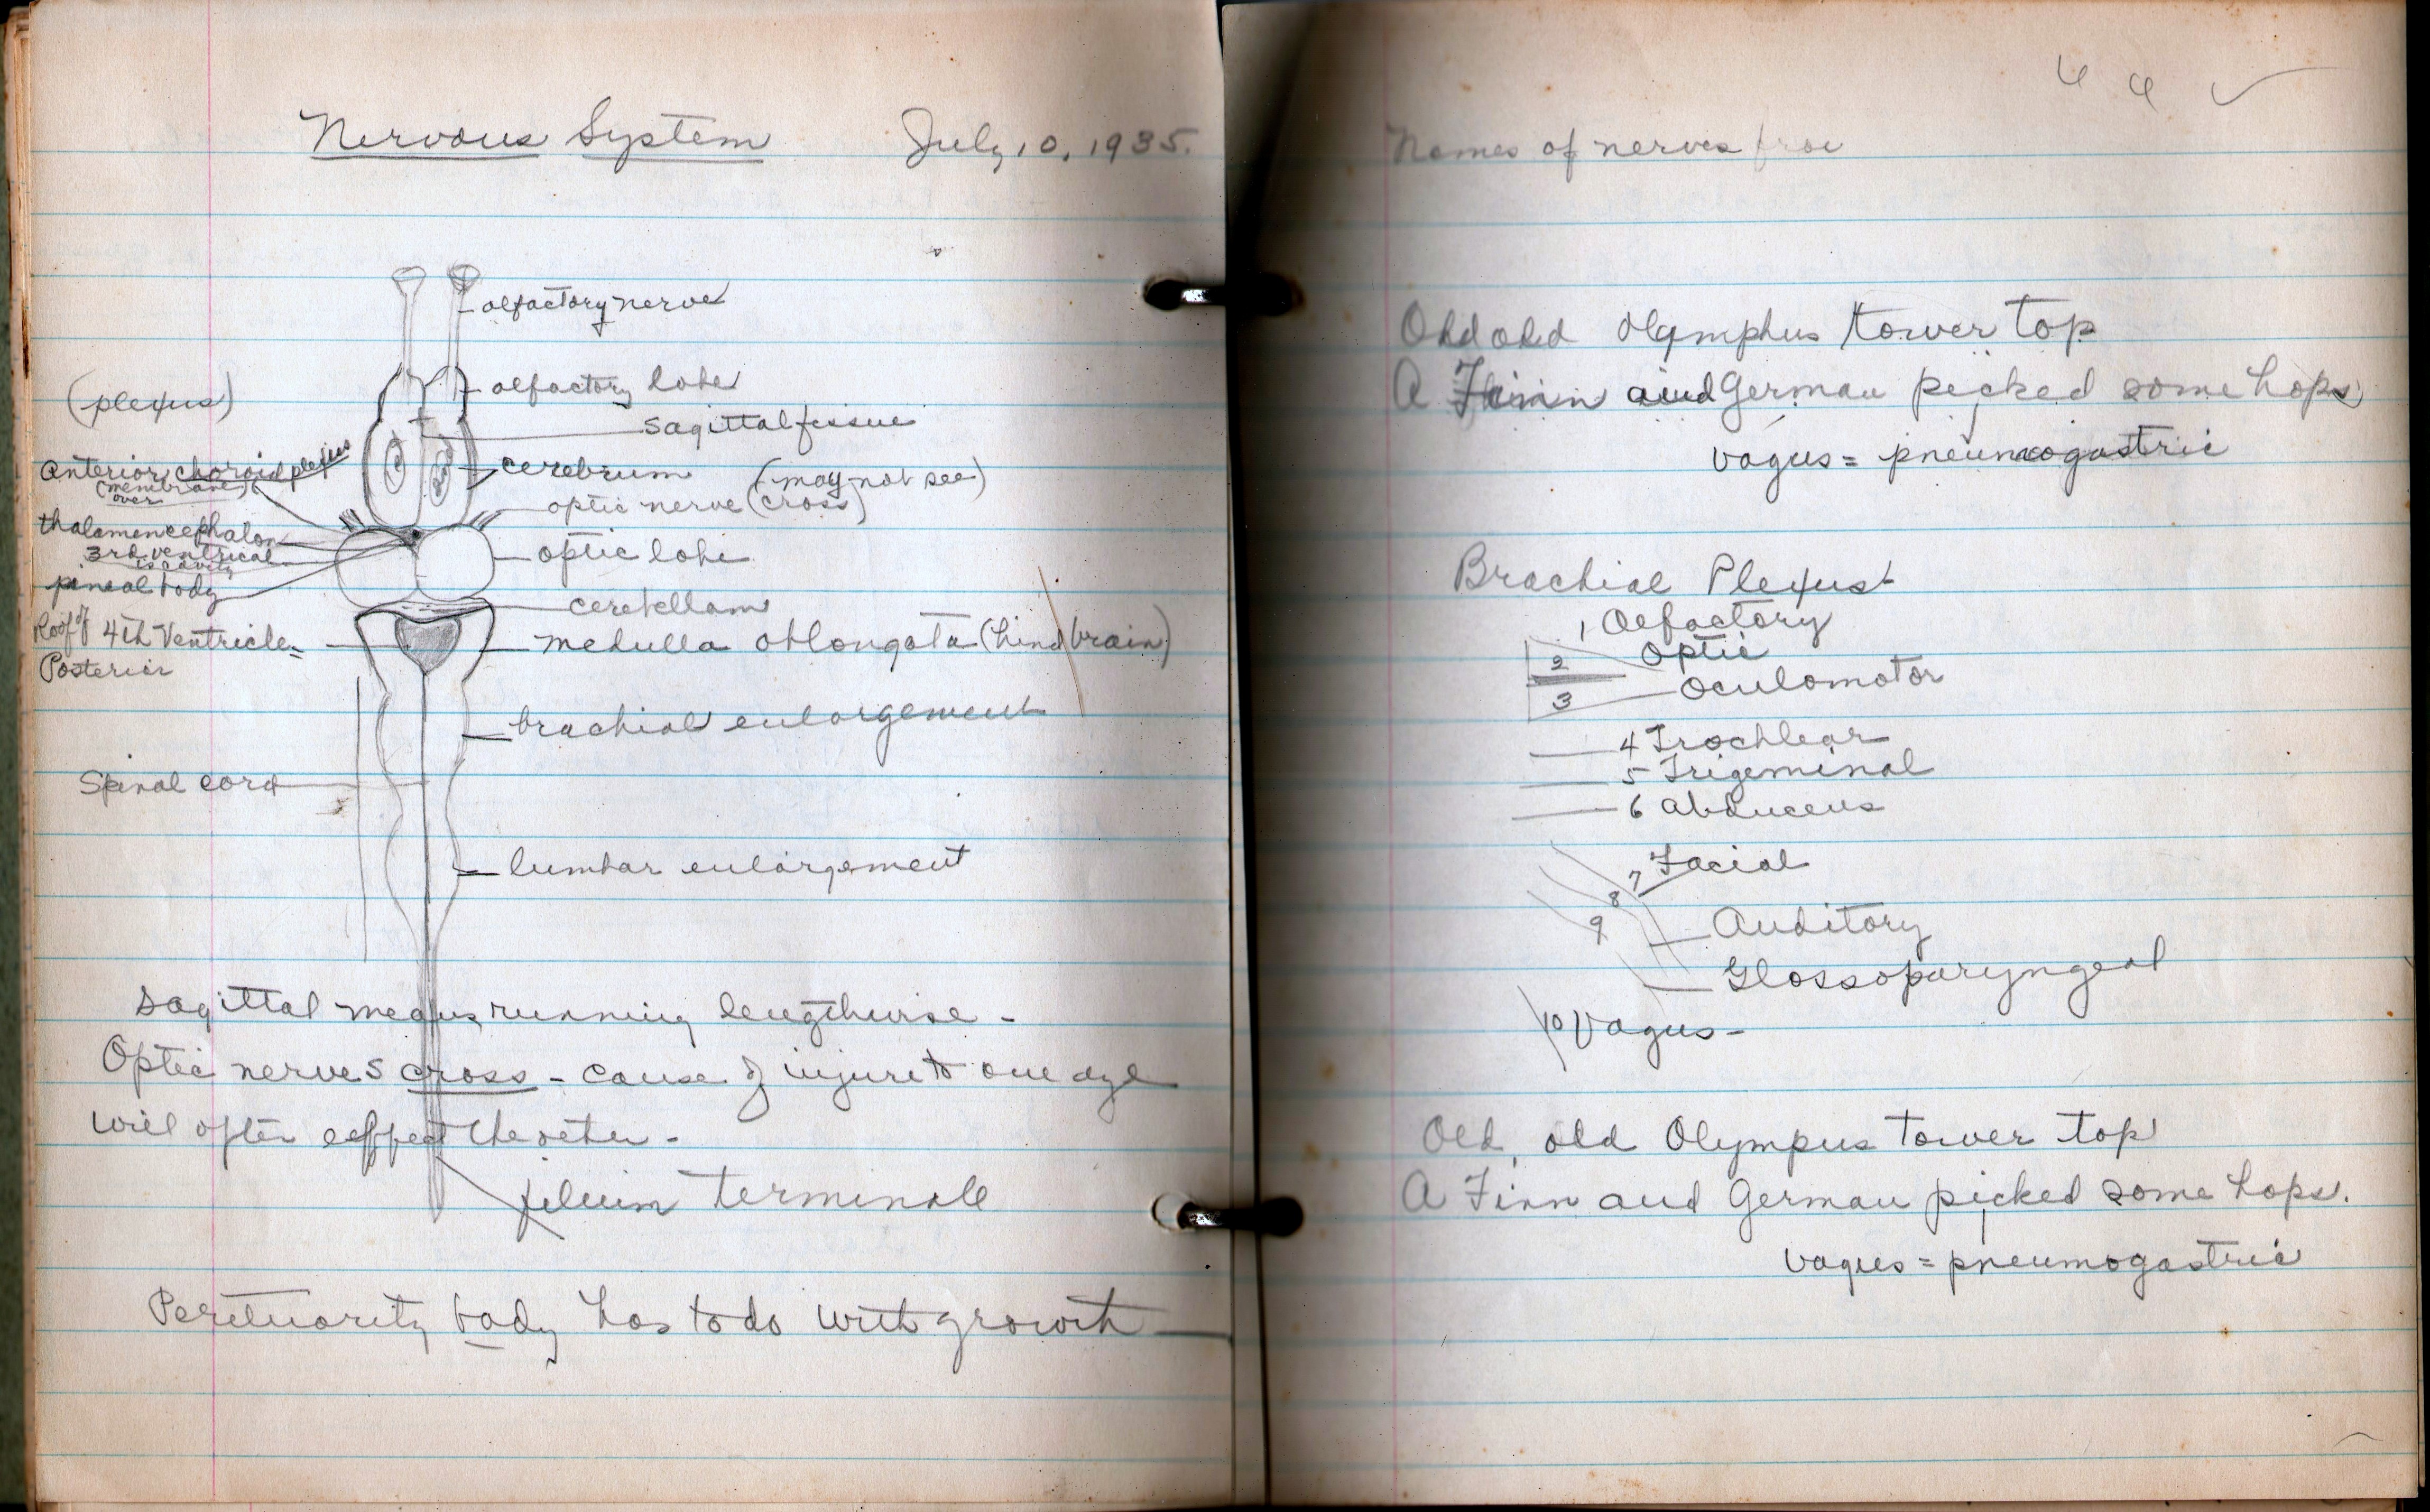 Nervous System July 10, 1935.
olfactory nerve
olfactory lobe
(plexus)
sagittal fissue
Anterior choroid plexus
cerebrum (may not see)
(membrane)
over
optic nerve (cross)
thalamencephalon
3rd ventrical
is cavity
optic lobe
pineal body
cerebellam
Roof of 4th Ventricle
medulla oblongata (hind brain)
Posterior
brachial enlargement
Spinal cord
lumbar enlargement
sagittal means running lengthwise -
Optic nerves cross - cause of injure to one eye
will often effect the other -
filium terminale
body has to do with growth
Names of nerves
Old old Olymphus tower top
A Finn and German picked some hops
vagus = pneumogastric
Brachial Plexus
1 Olfactory
2 Optic
3 Oculomotor
4 Trochlear
5 Trigeminal
6 Abducens
7 Facial
8
9 Auditory
Glossoparyngeal
10 Vagus -
Old, old Olympus tower top
A Finn and German picked some hops.
vagus = pneumogastric